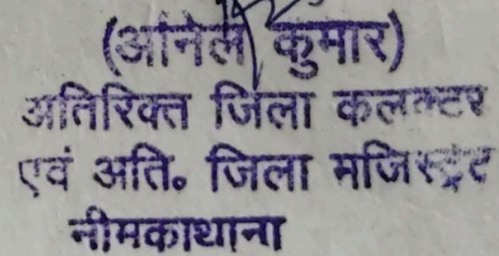 (अनिल कुमार)
अतिरिक्त जिला कलक्टर
एवं अति० जिला मजिस्ट्रेट
नीमकाथाना